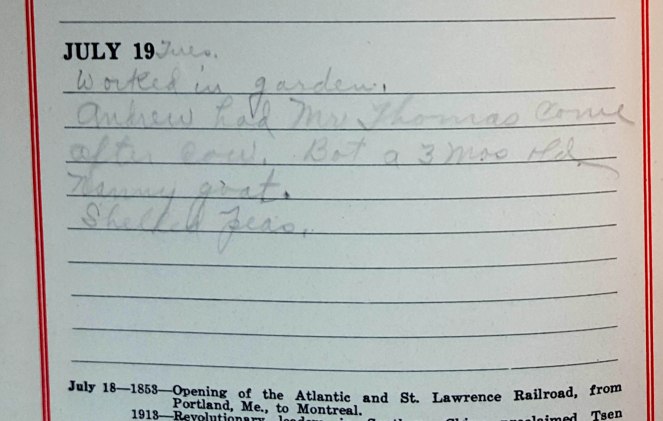 JULY 19 Tues.
Worked in garden.
Andrew had Mr Thomas come
after cow. Bot a 3 mos old
Nanny goat.
Shelled Peas.
July 18—1853—Opening of the Atlantic and St. Lawrence Railroad, from
Portland, Me., to Montreal.
1913—Revolutionary proclaimed Tsen